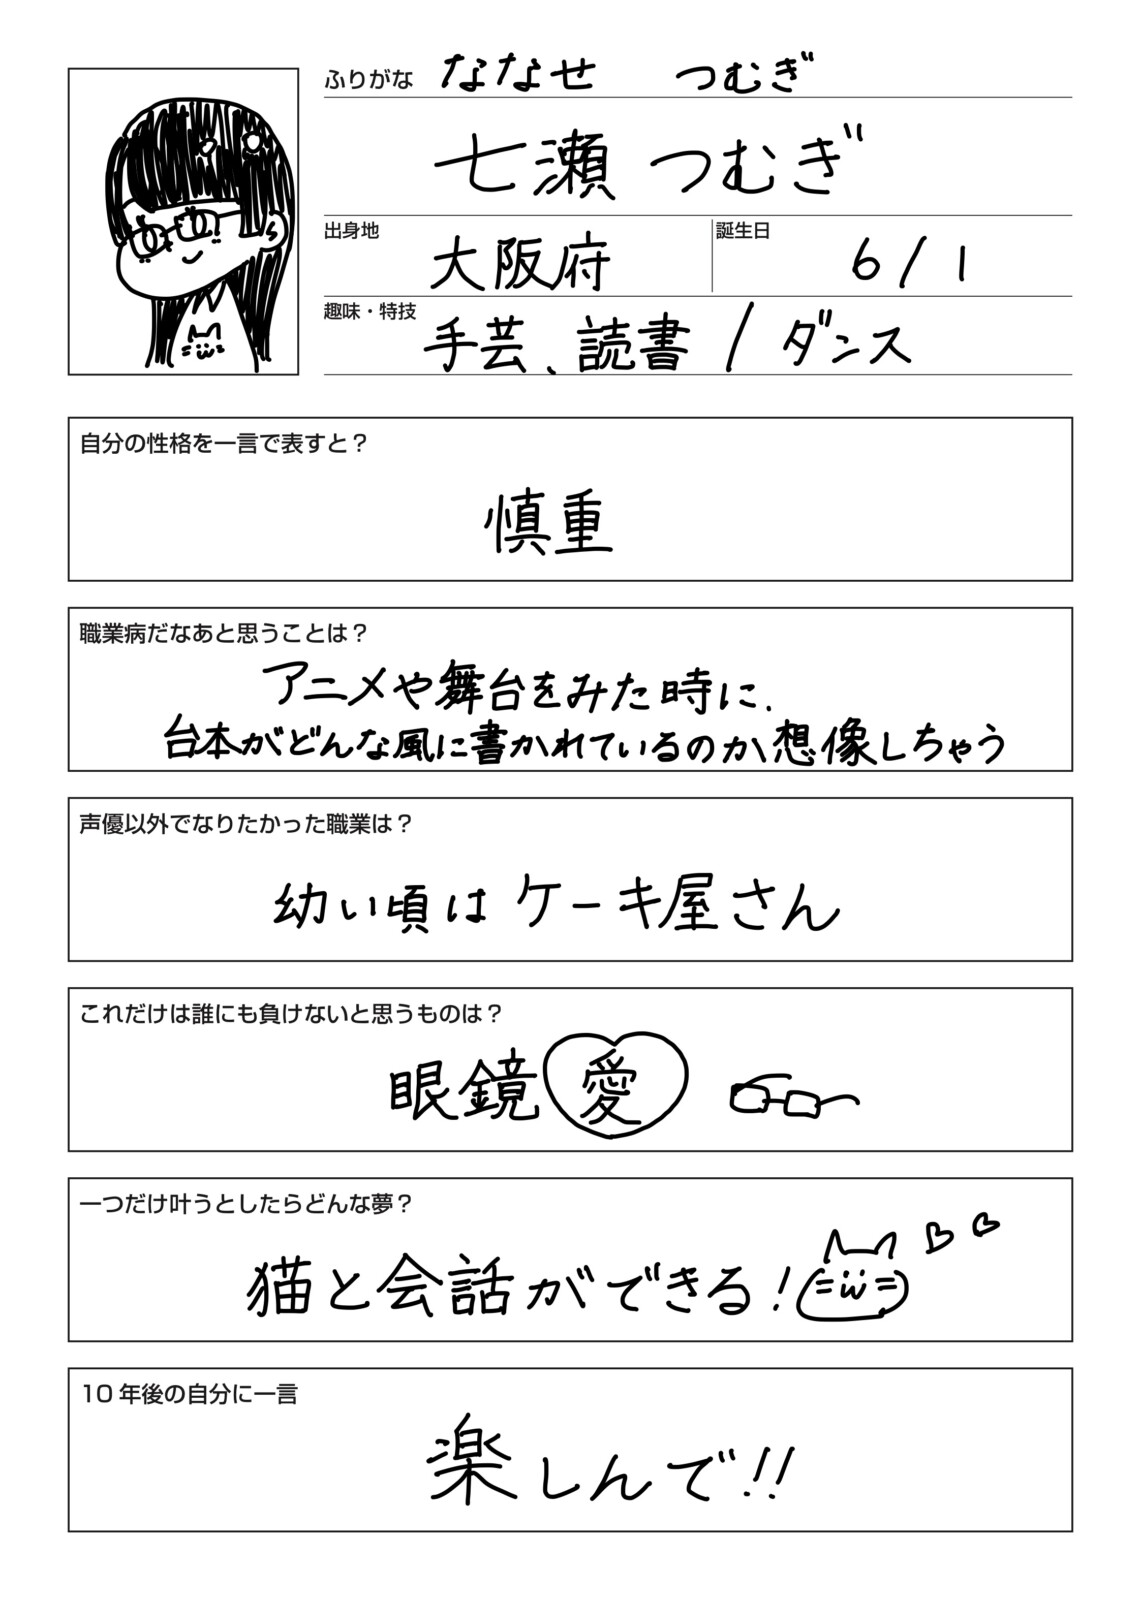 ふりがな ななせ つむぎ
七瀬 つむぎ
出身地 大阪府 誕生日 6/1
趣味・特技 手芸、読書 / ダンス
自分の性格を一言で表すと？
慎重
職業病だなあと思うことは？
アニメや舞台をみた時に、
台本がどんな風に書かれているのか想像しちゃう
声優以外でなりたかった職業は？
幼い頃は ケーキ屋さん
これだけは誰にも負けないと思うものは？
眼鏡愛
一つだけ叶うとしたらどんな夢？
猫と会話ができる！
10年後の自分に一言
楽しんで!!